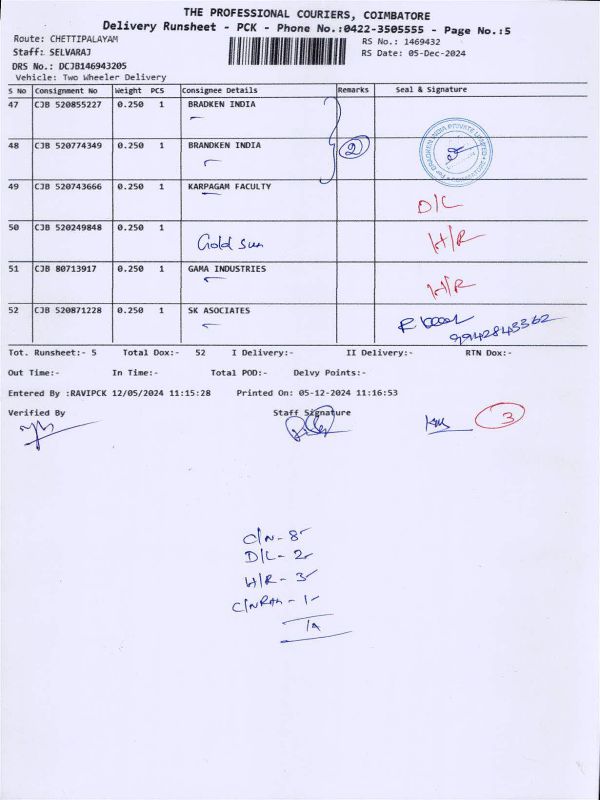 THE PROFESSIONAL COURIERS, COIMBATORE
Delivery Runsheet - PCK - Phone No.:0422-3505555 - Page No.:5
Route: CHETTIPALAYAM RS No.: 1469432
Staff: SELVARAJ RS Date: 05-Dec-2024
DRS No.: DCJB146943205
Vehicle: Two Wheeler Delivery
S No Consignment No Weight PCS Consignee Details Remarks Seal & Signature
47 CJB 520855227 0.250 1 BRADKEN INDIA
48 CJB 520774349 0.250 1 BRANDKEN INDIA 2
49 CJB 520743666 0.250 1 KARPAGAM FACULTY D/L
50 CJB 520249848 0.250 1 Gold Sun H/R
51 CJB 80713917 0.250 1 GAMA INDUSTRIES H/R
52 CJB 520871228 0.250 1 SK ASOCIATES
9942843362
Tot. Runsheet:- 5 Total Dox:- 52 I Delivery:- II Delivery:- RTN Dox:-
Out Time:- In Time:- Total POD:- Delvy Points:-
Entered By :RAVIPCK 12/05/2024 11:15:28 Printed On: 05-12-2024 11:16:53
Verified By Staff Signature
3
C/N - 8
D/L - 2
H/R - 3